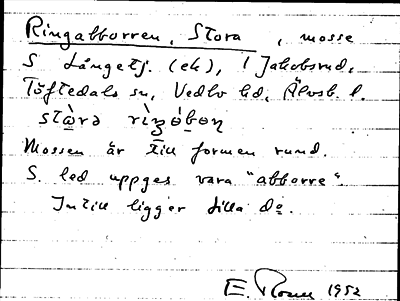 Ringabborren, Stora, mosse
S Långetj. (ek), i Jakobsrud,
Töftedals sn, Vedbo hd, Älvsb. l.
Mossen är till formen rund.
S. led uppges vara "abborre".
Intill ligger Lilla Do.
E. 1952